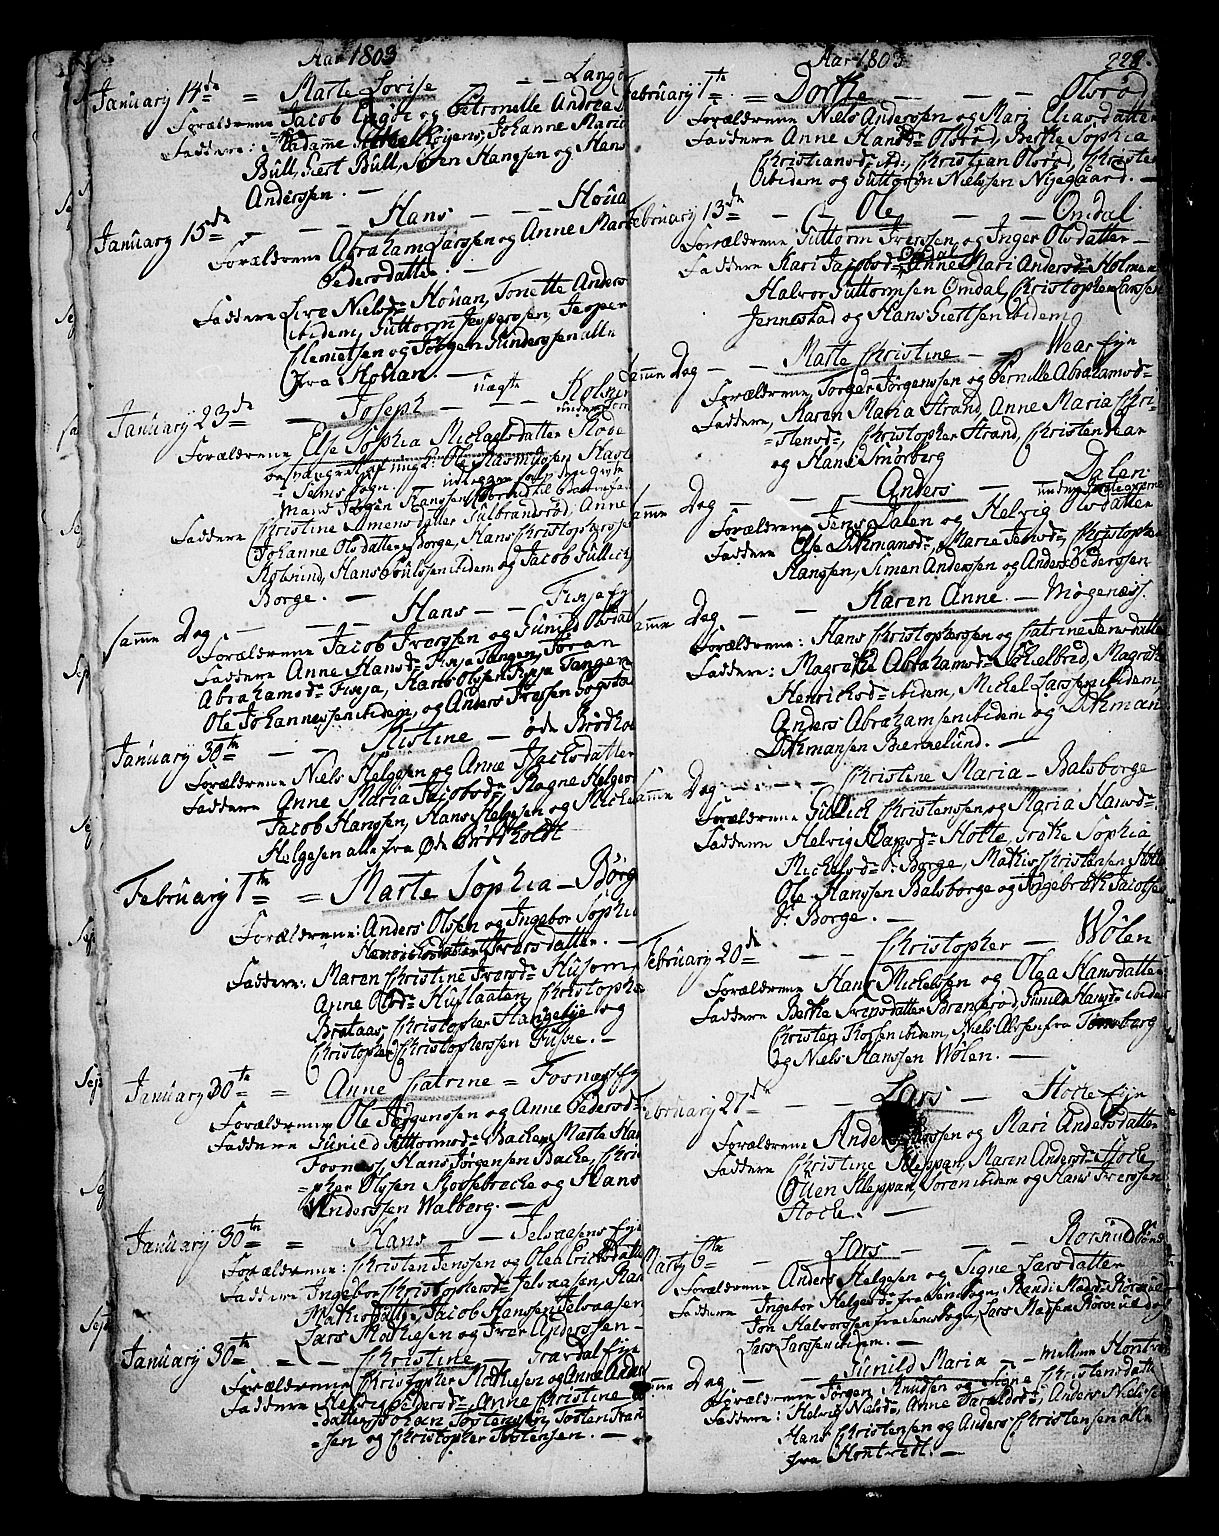 Aar 1803
January 14de = Marte Lovise - - - Lango
Forældrene Jacob Engør og Petronelle Andrea
Faddere: Madame Høyens, Johanne Marie
Büll, Giert Büll, Søren Hanssen og Hans
Anderssen. -
January 15de - - - Hans - - Houa
Forældrene Abraham Larssen og Anne Marte
Pedersdatter. -
Faddere Live Nielsd. Houan, Tonette Anders
ibidem, Guttorm Jespersen, Jesper
Clemetsen og Jørgen Gunderssen alle
fra Houan -
January 23de - Joseph - - uægte Kolnin
Forældrene Else Sophia Michaelsdatter
besvangret af ungk: Ole Rasmussen
i Sems Sogn. -
Mand Jørgen Hanssen
Faddere Christine Simensdatter Gulbrandsrød, Anne
Johanne Olsdatter Borge, Hans Christopherssen
Kolnind, Hans Poulssen ibidem og Jacob Gullich
Borge. -
samme Dag - - - Hans - - Finjefy
Forældrene Jacob Iverssen og Gunild Olsdat
Faddere Anne Hansd. Finja Tangen, Joran
Abrahamsd. Finja, Hans Olssen Finja Tangen
Ole Johannessen ibidem, og Anders Iverssen
January 30th - - Kistine - øde Brødhol
Forældrene Niels Helgesen og Anne Isachsdatter
Faddere Anne Maria Jacobsd. Ragne Helges
Jacob Hanssen, Hans Helgesen og Michel
Helgesen alle fra Øde Brødholdt
February 1th = Marte Sophia - Børg
Forældrene: Anders Olssen og Ingebor Sophia
Iversdatter. -
Faddere: Maren Christine Iversd. Husom,
Anne Olsd. Huslaaten, Christopher
Brataas, Christopher Hangebje og
Christopher Christopherssen Fusse. -
January 30te = Anne Catrine = Fosnæsfy
Forældrene Ole Jørgenssen og Anne Pedersd.
Faddere Gunild Guttormsd. Backen, Marte Han
Fosnæss, Hans Jørgensen Backe, Chri
=pher Olssen Roosebrecke og Hans
Anderssen Walberg. -
January 30te = Hans - - Jelvaasens fy
Forældrene: Christen Jenssen og Olea Ericsdatter
Faddere Ingebor Christophersd. Jelvaasen, Kari
Mathisdatter, Jacob Hanssen Jelvaasen
Lars Mathiesen og Iver Anderssen -
January 30th - - Christine - Gravdal fy
Forældrene Christopher Mathiesen og Anne Ander
Faddere Helvig Pedersd. Anne Christine
datter, Johan Tostenssen, Tosten Fran
=sen og Christopher Tostensen. -
Aar 1803 228.
February 1th = Dorthe - - - Olsrød
Forældrene Niels Anderssen og Mari Eliasdatter
Faddere Anne Hansd. Olsrød, Berthe Sophia
Christiansd. ibd., Christian Olsrød, Christen
ibidem og Guttorm Nielssen Nyegaard. -
February 13de - - Ole - - Omdal
Forældrene Guttorm Iverssen og Inger Olsdatter -
Faddere Kari Jacobsd. Omdal, Anne Mari Andersd. Holmen
Halvor Guttormsen Omdal, Christopher Larssen
Jennestad og Hans Giertsen ibidem
samme Dag - - Marte Christine - - Wear Eje
Forældrene Torger Jørgenssen og Pernille Abrahamsd.
Faddere, Karen Maria Strand, Anne Maria Chri-
=stensd., Christopher Strand, Christen Wear
og Hans Smørberg
samme Dag - - - Anders - - Dalen
Forældrene Jens Dalen og Helvig Olsdatter
Faddere Else Ditmansd., Marie Jensd., Christopher
Hanssen, Simen Anderssen og Anders Pederssen
samme Dag - - Karen Anne - Mogenæss.
Forældrene: Hans Christopherssen og Catrine Jensdatter
Faddere: Magrathe Abrahamsd. Eckelbrød, Magrathe
Henrichsd. ibidem, Michel Larssen ibidem,
Anders Abrahamsen ibidem og Ditman
Ditmansen Bierkelund. -
samme Dag - - - Christine Maria - Balsborge
Forældrene Gullich Christenssen og Maria Hansd.
Faddere Helvig Hansd. Holte, Grethe Sophia
Michelsd. S: Borge, Mathis Christensen Holte
Ole Hanssen Balsborge og Ingebreth Jacobsen
S: Borge. -
February 20de - - Christopher - Wølen
Forældrene Hans Michelssen og Olea Hansdatter
Faddere Berthe Svensdatter Brendsrød, Gunild Hansd. ibidem
Christen Thorsen ibidem, Niels Olssen fra Tønsberg
og Niels Hanssen Wølen. -
February 27de - - Lars - Stocke Eje
Forældrene Anders Larssen og Mari Andersdatter
Faddere Christine Kleppan, Maren Andersd. Stocke
Otten Kleppan, Søren ibidem og Hans Iverssen
Stocke. -
Marty 6te - Lars - - - Rørkuld
Forældrene Anders Helgesen og Signe Larsdatter
Faddere Ingebor Helgesd. fra Sem Sogn, Randi Madsd.
Jon Halvorssen fra Sems Sogn, Lars Madssen
Lars Larssen ibidem. -
samme Dag - - Gunild Maria - - mellem Hontvet
Forældrene Jørgen Knudsen og Signe Christensdatter
Faddere: Helvig Nielsd., Anne Haraldsd., Anders Nielssen
Hans Christensen og Anders Christensen alle
fra Hontvedt. -